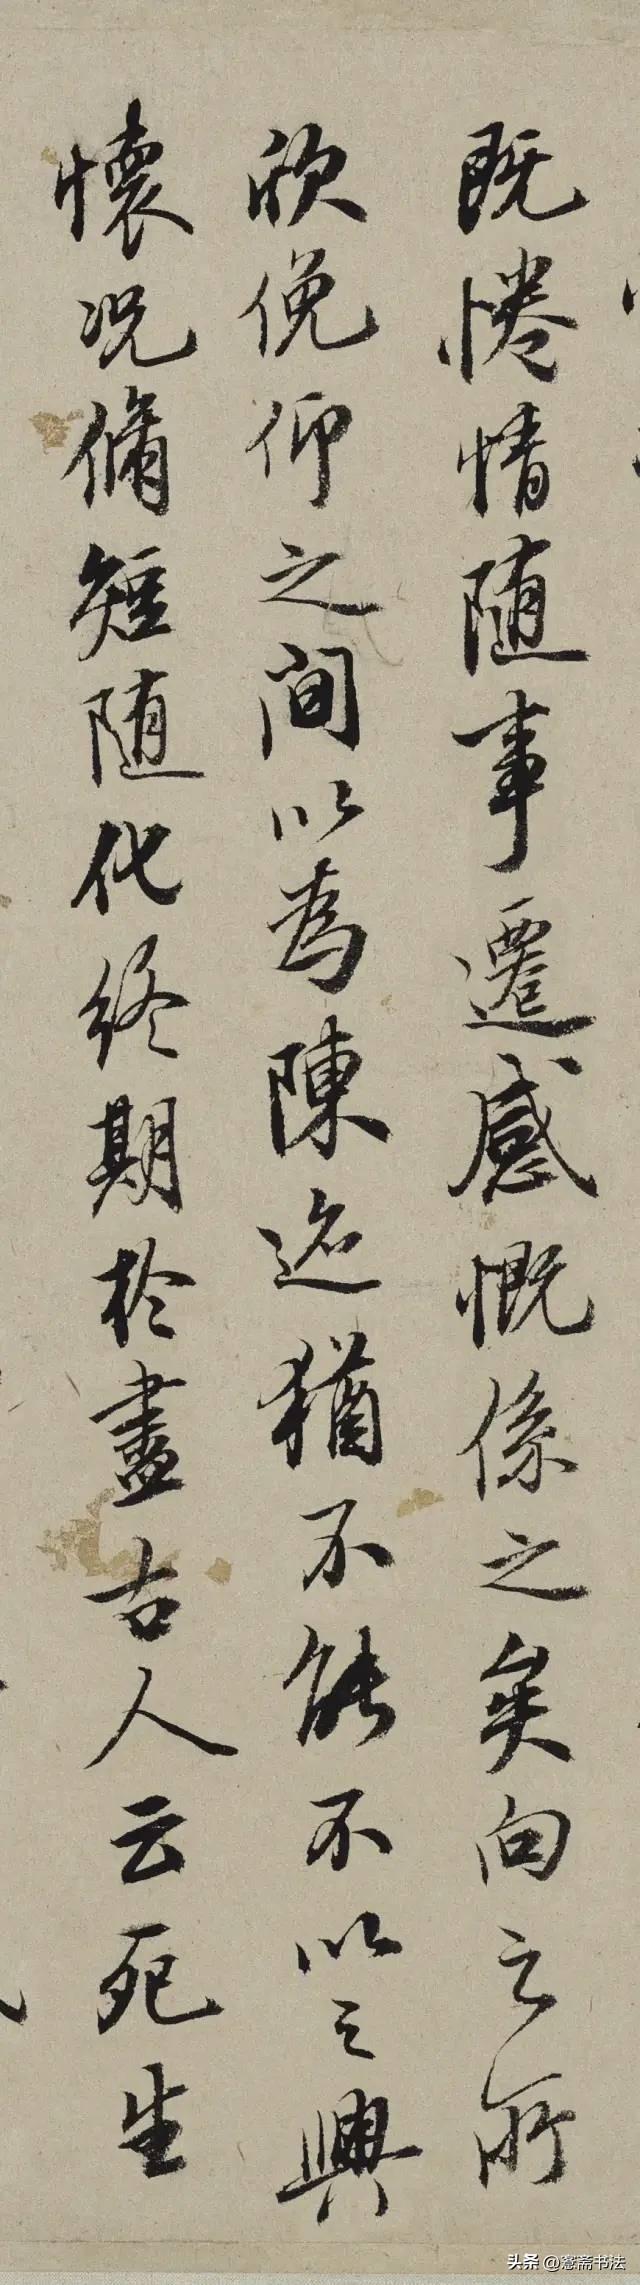 既惓情随事遷感慨係之矣向之所
欣俛仰之間以為陳迹猶不能不以之興
懷况脩短随化終期於盡古人云死生
头条 @窓斋书法